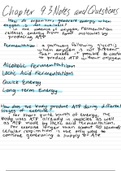 Chapter 9.3 Notes and Questions
How do organisms generate energy when
oxygen is not available?
In the absence of oxygen, fermentation
releases energy from food molecules by
producing ATP
Fermentation - a process by which
when oxygen is not present
to produce ATP without oxygen
Alcoholic Fermentation
Lactic Acid Fermentation
Quick Energy
Long-Term Energy
How does the body produce ATP during different
stages of exercise?
For short, quick bursts of energy, the
body uses ATP already in muscles as well
as ATP made by lactic acid fermentation.
For exercise longer than about 90 seconds,
cellular respiration is the only way to
continue generating a supply of ATP.